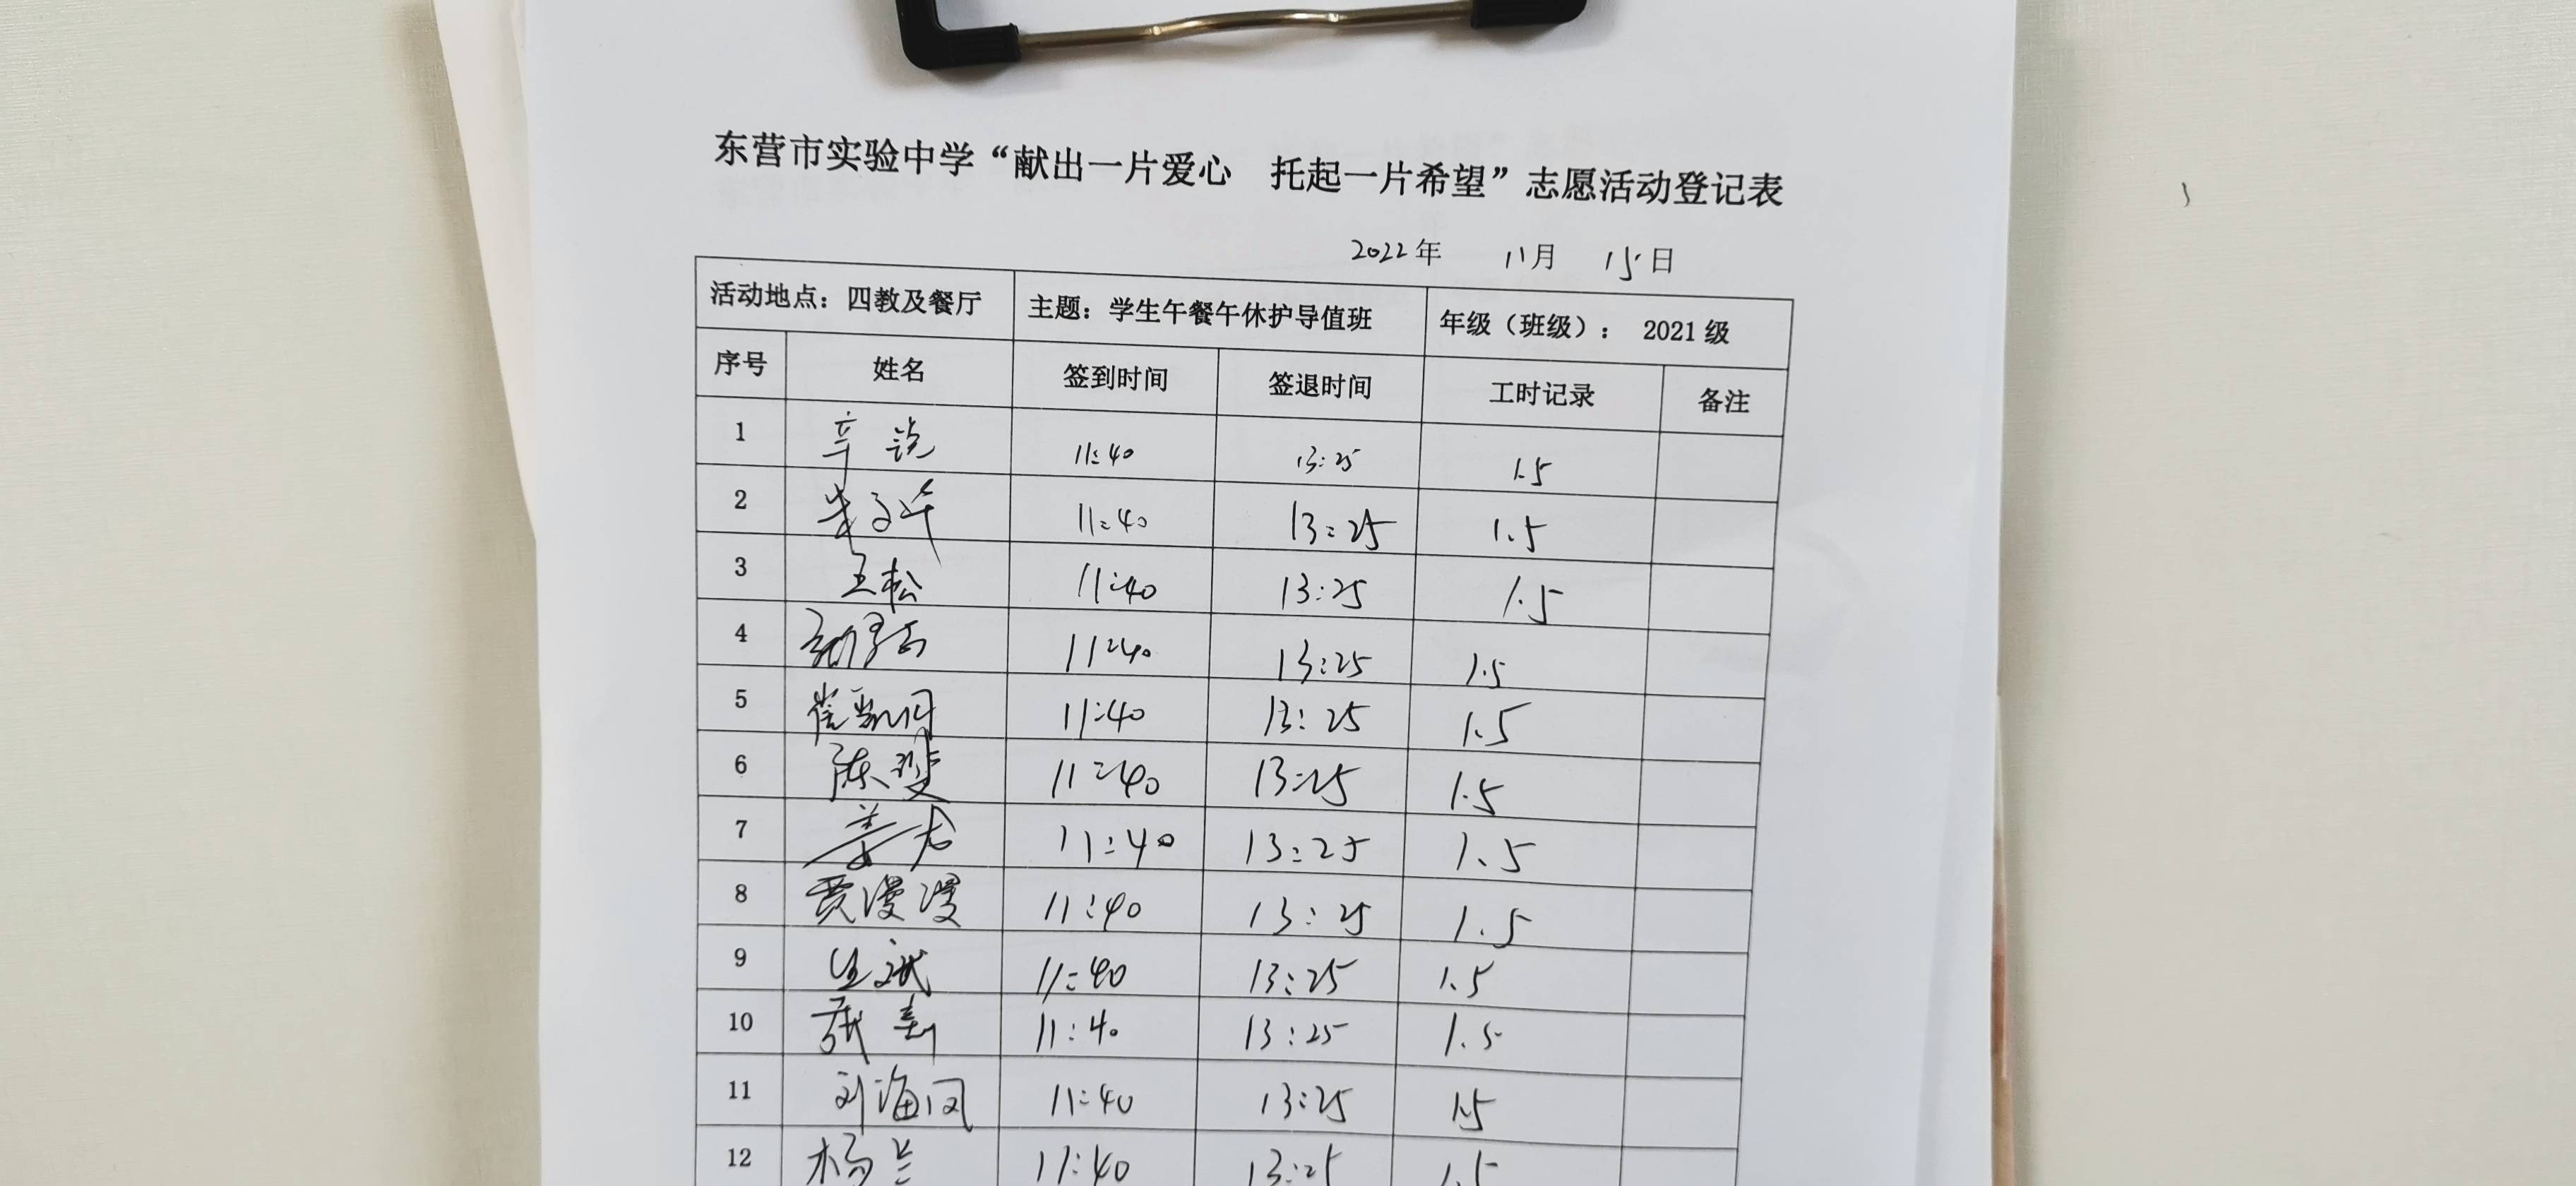 东营市实验中学“献出一片爱心 托起一片希望”志愿活动登记表
2022年 11月 15日
活动地点：四教及餐厅 主题：学生午餐午休护导值班 年级（班级）： 2021级
序号 姓名 签到时间 签退时间 工时记录 备注
1 辛锐 11:40 13:25 1.5
2 11:40 13:25 1.5
3 王松 11:40 13:25 1.5
4 11:40 13:25 1.5
5 崔 11:40 13:25 1.5
6 陈斐 11:40 13:25 1.5
7 姜龙 11:40 13:25 1.5
8 贾漫漫 11:40 13:25 1.5
9 11:40 13:25 1.5
10 11:40 13:25 1.5
11 刘海凤 11:40 13:25 1.5
12 杨兰 11:40 13:25 1.5